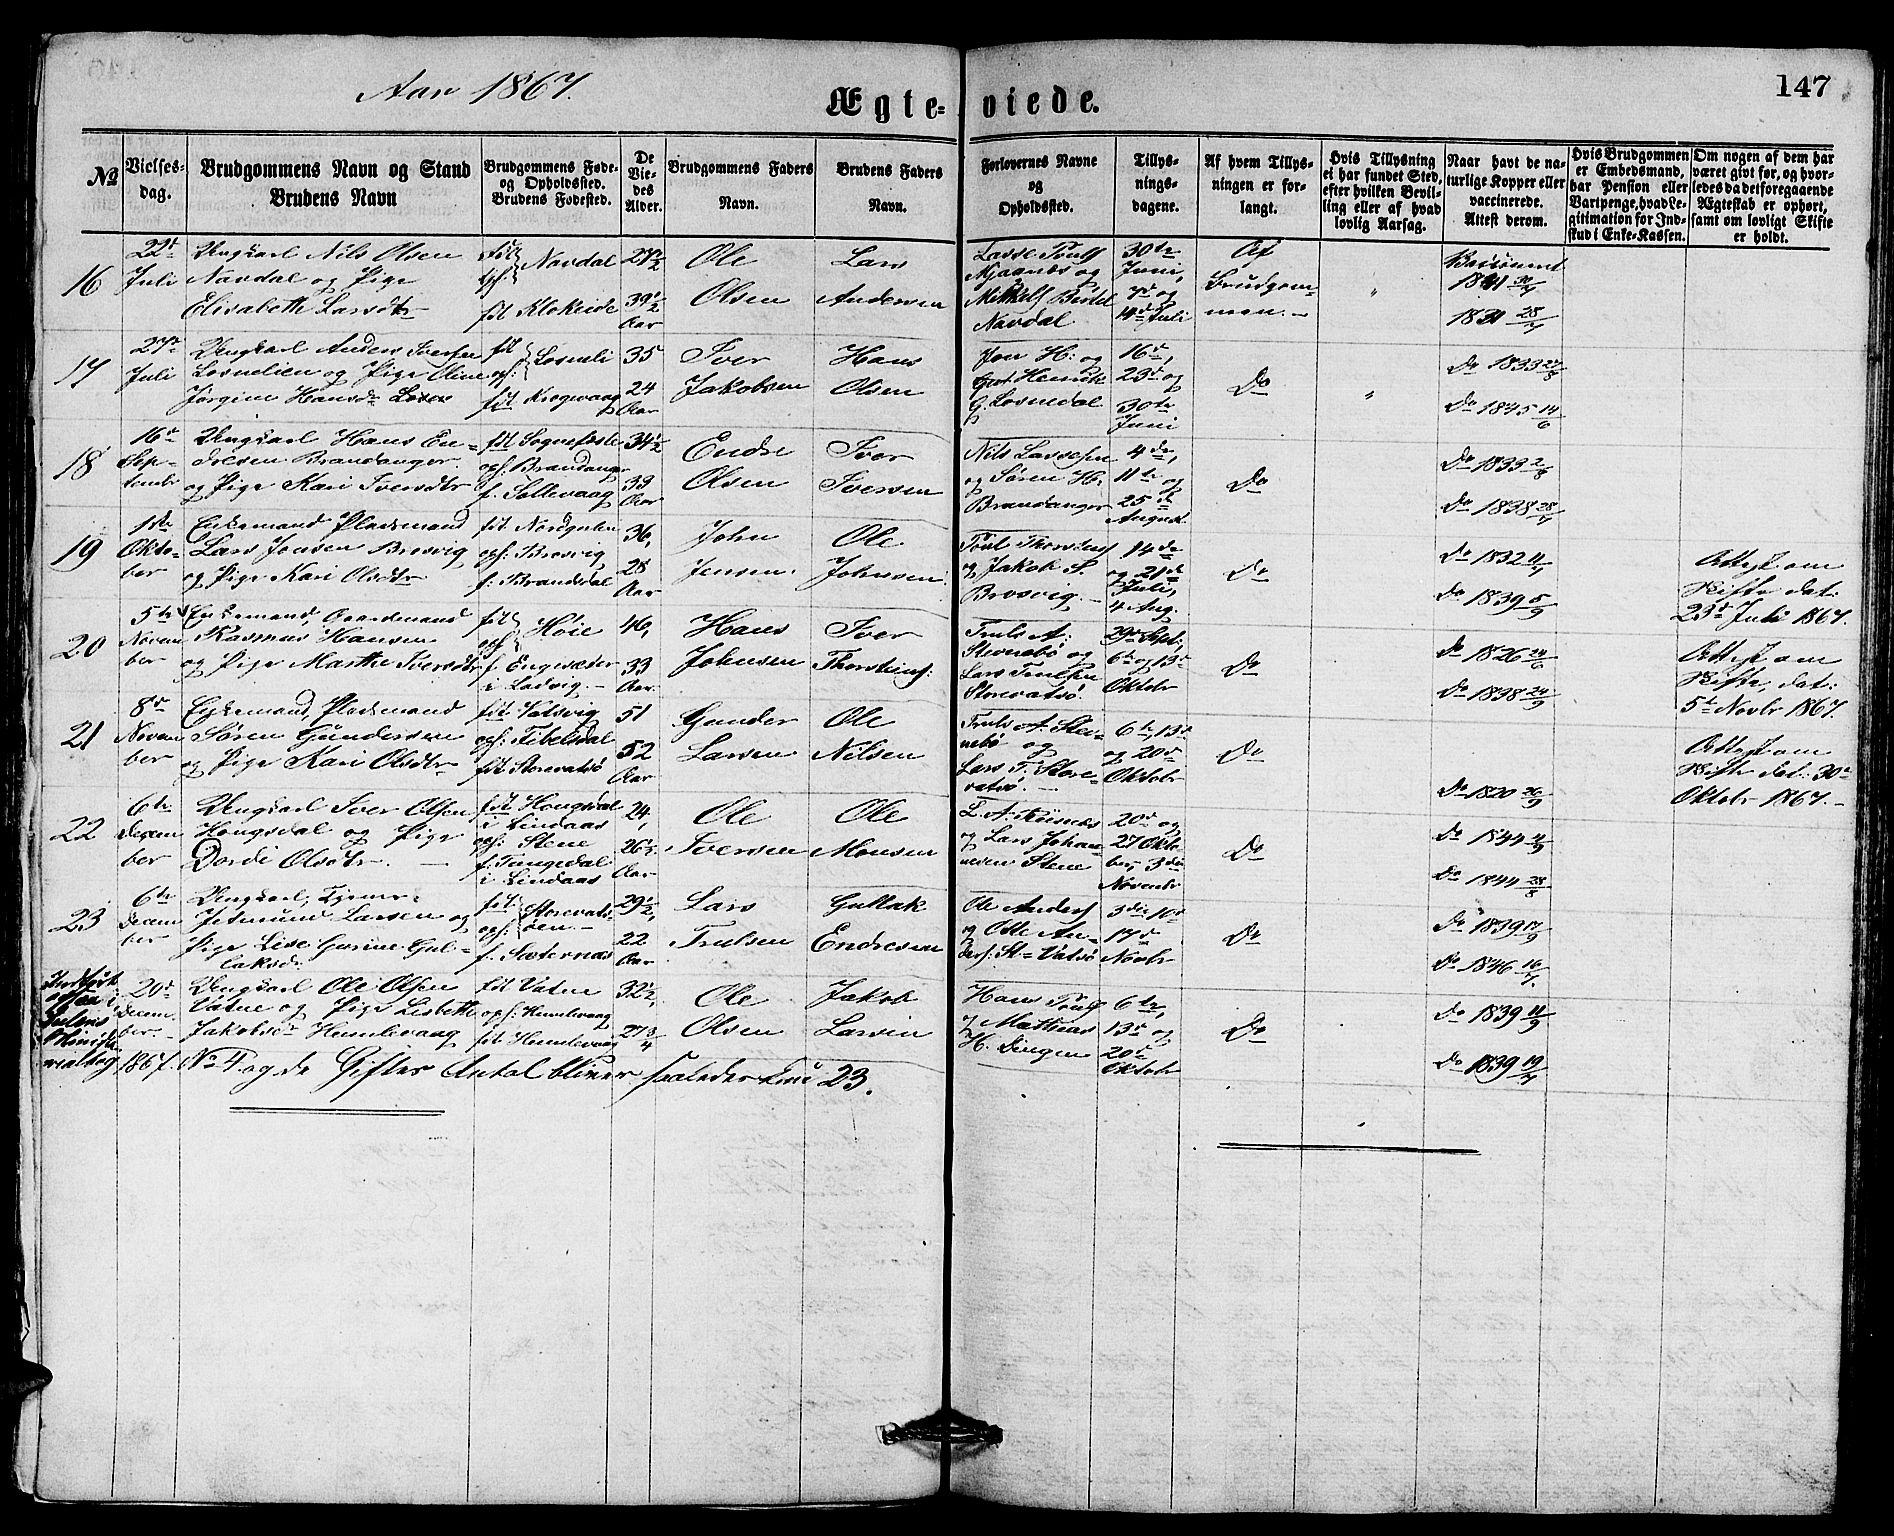 Aar 1867.
Ægte-viede.
147
№
Vielses-
dag.
Brudgommens Navn og Stand
Brudens Navn
Brudgommens Føde-
og Opholdssted.
Brudens Fødested.
De
Vie-
des
Alder.
Brudgommens Faders
Navn.
Brudens Faders
Navn.
Forlovernes Navne
og
Opholdssted.
Tillys-
nings-
dagene.
Af hvem Tillys-
ningen er for-
langt.
Hvis Tillysning
ei har fundet Sted,
efter hvilken Bevil-
ling eller af hvad
lovlig Aarsag.
Naar havt de na-
turlige Kopper eller
vaccinerede.
Attest derom.
Hvis Brudgommen
er Embedsmand,
har Pension eller
Vartpenge, hvad Le-
gitimation for Ind-
skud i Enke-Kassen.
Om nogen af dem har
været givt før, og hvor-
ledes da det foregaaende
Ægteskab er ophørt,
samt om lovligt Skifte
er holdt.
16
22de
Juli
Ungkarl Nils Olsen
Navdal og Pige
Elisabeth Larsdtr
Navdal
fdt Klokeide
27½
39½
Aar
Ole
Olsen
Lars
Andersen
Lasse
og
Navdal
30te
Juni,
7de og
14de Juli
Af
Brudgom-
men.
"
1841
1831 28/7
17
27de
Juli
Ungkarl Anders Iversen
Losnelien og Pige Oline
Jørgine Hansdr
fdt
oph:
Losneli
fdt Krogevaag
35
24
Aar
Iver
Jakobsen
Hans
Olsen
H: og
Henrik
G. Losnedal
16de,
23de og
30te
Juni
Do
"
Do 1833 27/8
Do 1845 14/6
18
16de
Sep-
tember
Ungkarl Hans En-
dresen Brandanger
og Pige Kari Iversdtr
fdt Sognefæste
oph: Brandanger
f. Sollevaag
34½
33
Aar
Endre
Olsen
Iver
Iversen
Nils Lassesen
og Søren H.
Brandanger
4de,
11te og
25de
August
Do
Do 1833 2/8
Do 1838 28/7
19
1ste
Okto-
ber
Enkemand Pladsmand
Lars Jensen Brosvig
og Pige Kari Olsdtr
fdt Nordgulen
oph: Brosvig
f. Brandsdal
36,
28
Aar
John
Jensen.
Ole
Johnsen.
Poul Thorstens
og Jakob S.
Brosvig.
14de
og 21de
Juli,
4 Aug.
Do
Do 1832 4/7
Do 1839 5/9
Attest om
Skifte dat:
23de Juli 1867.
20
5te
Novem
ber
Enkemand, Gaardmand
Rasmus Hansen
og Pige Marthe Iversdtr
fdt
oph:
Høie
f. Engesæter
i Ladvig.
46,
33
Aar.
Hans
Johnsen
Iver
Thorsteins:
Truls A:
Stenebø og
Lars Trulsen
Storevatsø.
29de Sept,
6te og 13de
Oktobr
Do
Do 1826 24/6
Do 1838 24/9
Attest om
Skifte, dat:
5te Novbr 1867.
21
8de
Novem
ber
Enkemand, Pladsmand
Søren Gundersen
og Pige Kari Olsdtr
fdt Vatsvig
oph: Tibelsdal
fdt Storevatsø
51
52
Aar
Gunder
Larsen
Ole
Nilsen
Truls A. Ste-
nebø og
Lars T. Store-
vatsø.
6te, 13de
og 20de
Oktobr
Do
Do 1820 26/9
Attest om
Skifte dat: 30te
Oktobr 1867.
22
6te
Decem
ber
Ungkarl Iver Olsen
Hougsdal og Pige
Dordi Olsdtr.
fdt Hougsdal
i Lindaas
oph: Stene
f. Tungedal
i Lindaas
24,
26½
Aar
Ole
Iversen
Ole
Monsen
L. A.
og Lars Johan-
nesen Stene
20de og
27 Okto-
ber, 3die
Novembr
Do
Do 1844 4/9
Do 1844 28/8
23
6te
Decem
ber
Ungkarl,
Larsen og
Pige Lise Gurine Gul-
laksdr.
fdt
oph:
Storevats-
øen.
f. Sæternæs
29½,
22
Aar
Lars
Trulsen
Gullak
Endresen
Ole Anders
og Otte An-
ders: St= Vatsø
3die 10de
17de
Novbr
Do
Do 1839 17/9
Do 1846 16/7.
20de
Decem-
ber.
Ungkarl Ole Olsen
Vatne og Pige Lisbeth
Jakobsdr Humlevaag
fdt Vatne
oph: Humlevaag
fdt Humlevaag
32½,
27¾
Ole
Olsen
Jakob
Larsen
Hans
og Mathias
H. Dingen
6te,
13de og
20de
Oktobr
Do
Do 1839 11/9
Do 1839 19/7
Indført
ogsaa i
Gulens
Ministe
rialbog 1867. No 4. og de Giftes Antal bliver saaledes kun 23.